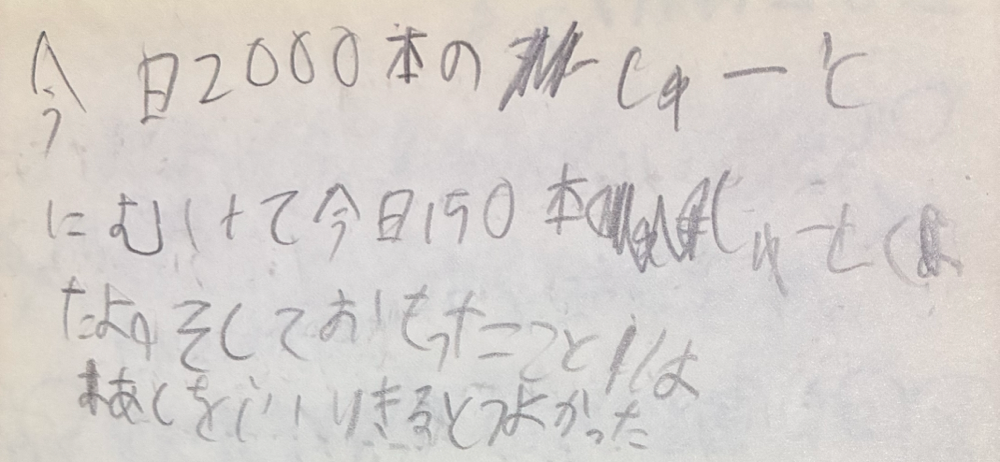 今日2000本のしゅーと
にむけて今日150本しゅーとく
たよ そしておもったことは
あしをいいりきるとつよかった